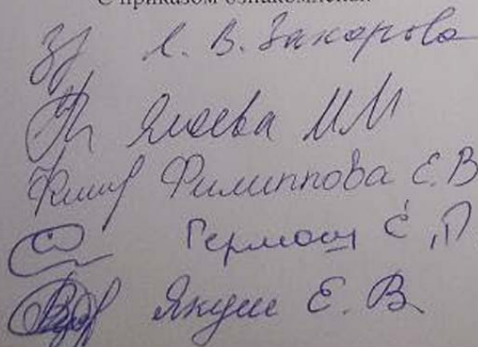 С приказом ознакомлены:
Л. В. Захарова
Ялаева М М
Филиппова Е. В
Гермаш Е. П
Якуш Е. В.